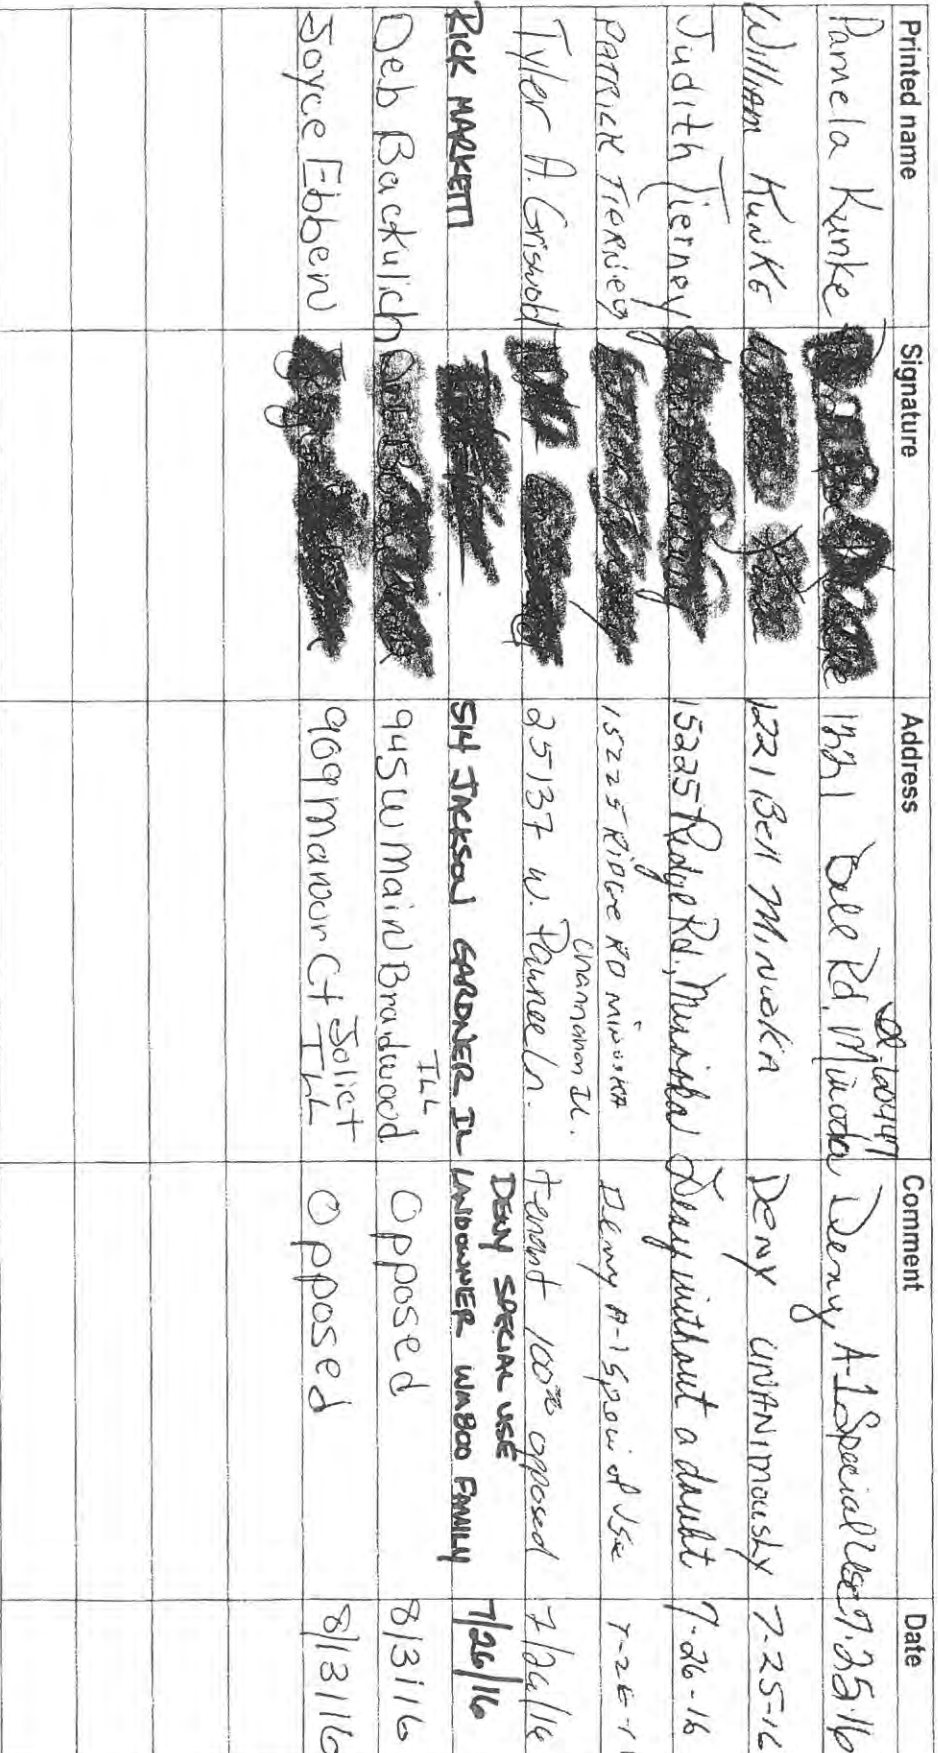 Printed name Signature Address Comment Date
Pamela Kunke 1221 Bell Rd. Minooka Il. 60447 Deny A-1 Special Use 7-25-16
William Kunke 1221 Bell Minooka Deny unanimously 7-25-16
Judith Tierney 15225 Ridge Rd., Minooka Deny without a doubt 7-26-16
PATRICK TIERNEY 15225 RIDGE RD MINOOKA Deny A-1 Special Use 7-26-1
Tyler A. Griswold 25137 W. Pawnee Ln. Channahon IL. Tenant 100% opposed 7/26/16
RICK MARKETTI 514 JACKSON GARDNER IL DENY SPECIAL USE LANDOWNER FAMILY 7/26/16
Deb Backulich 945 W Main Braidwood ILL Opposed 8/3/16
Joyce Ebben 909 Manor Ct Joliet ILL Opposed 8/3/16